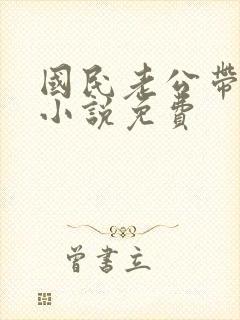 國民老公帶
小說免費
曾書立